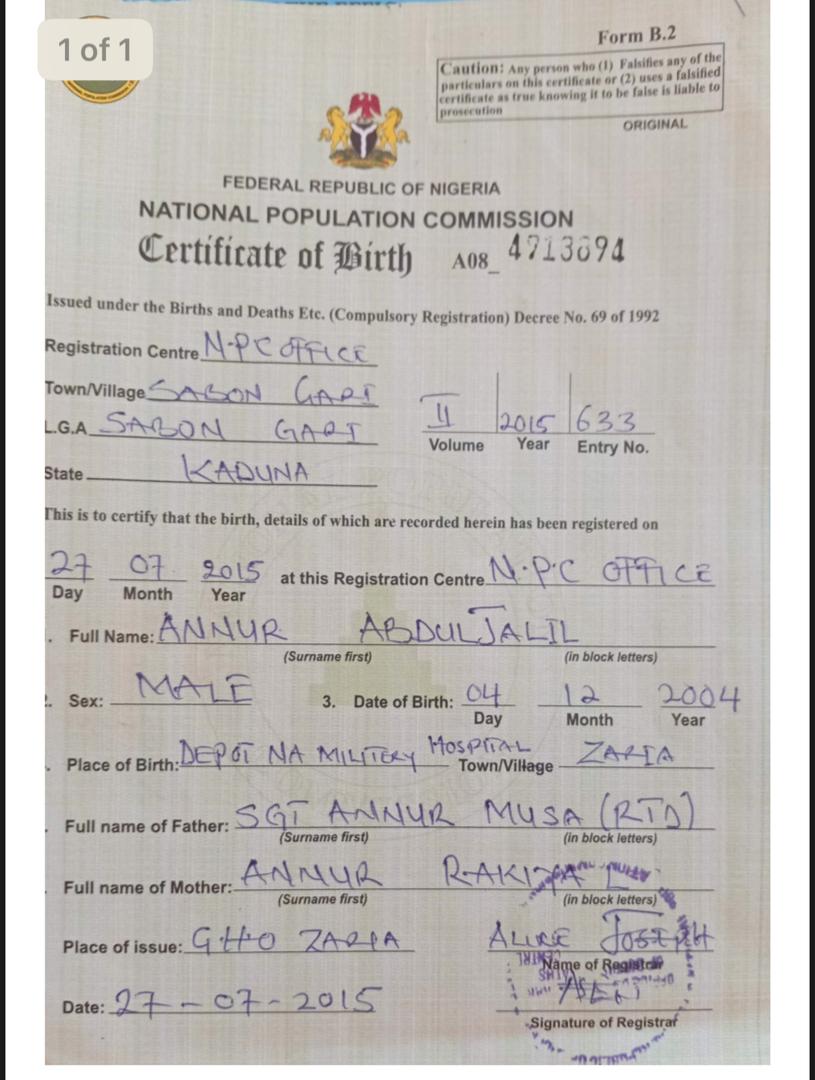 1 of 1
Form B.2
Caution: Any person who (1) Falsifies any of the
particulars on this certificate or (2) uses a falsified
certificate as true knowing it to be false is liable to
prosecution
ORIGINAL
FEDERAL REPUBLIC OF NIGERIA
NATIONAL POPULATION COMMISSION
Certificate of Birth A08_ 4713694
Issued under the Births and Deaths Etc. (Compulsory Registration) Decree No. 69 of 1992
Registration Centre N.PC OFFICE
Town/Village SABON GARI
L.G.A SABON GARI
II 2015 633
Volume Year Entry No.
State KADUNA
This is to certify that the birth, details of which are recorded herein has been registered on
27 07 2015 at this Registration Centre N.P.C OFFICE
Day Month Year
. Full Name: ANNUR ABDULJALIL
(Surname first) (in block letters)
. Sex: MALE 3. Date of Birth: 04 12 2004
Day Month Year
. Place of Birth: DEPOT NA MILITERY HOSPITAL Town/Village ZARIA
. Full name of Father: SGT ANNUR MUSA (RTD)
(Surname first) (in block letters)
. Full name of Mother: ANNUR
(Surname first) (in block letters)
Place of issue: GHO ZARIA JOSEPH
Name of Registrar
Date: 27-07-2015
Signature of Registrar